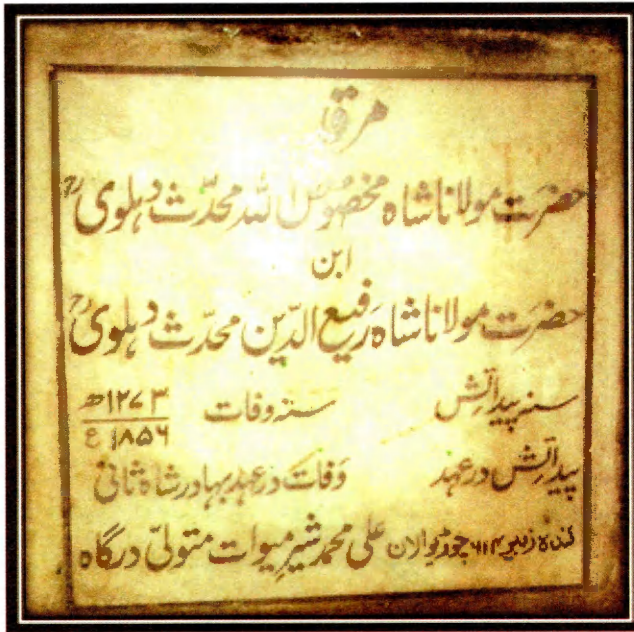 مرقد
حضرت مولانا شاہ مخصوص اللہ محدّث دہلوی رح
ابن
حضرت مولانا شاہ رفیع الدّین محدّث دہلوی رح
سنہ پیدائش سنہ وفات ۱۲۷۳ھ
۱۸۵۶ع
پیدائش در عہد وفات در عہد بہادر شاہ ثانی
کندہ زبیر ۶۱۴ چوڑیوالان علی محمد شیرِ میوات متولیّ درگاہ